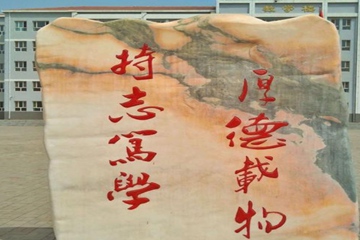 厚德載物
持志篤學